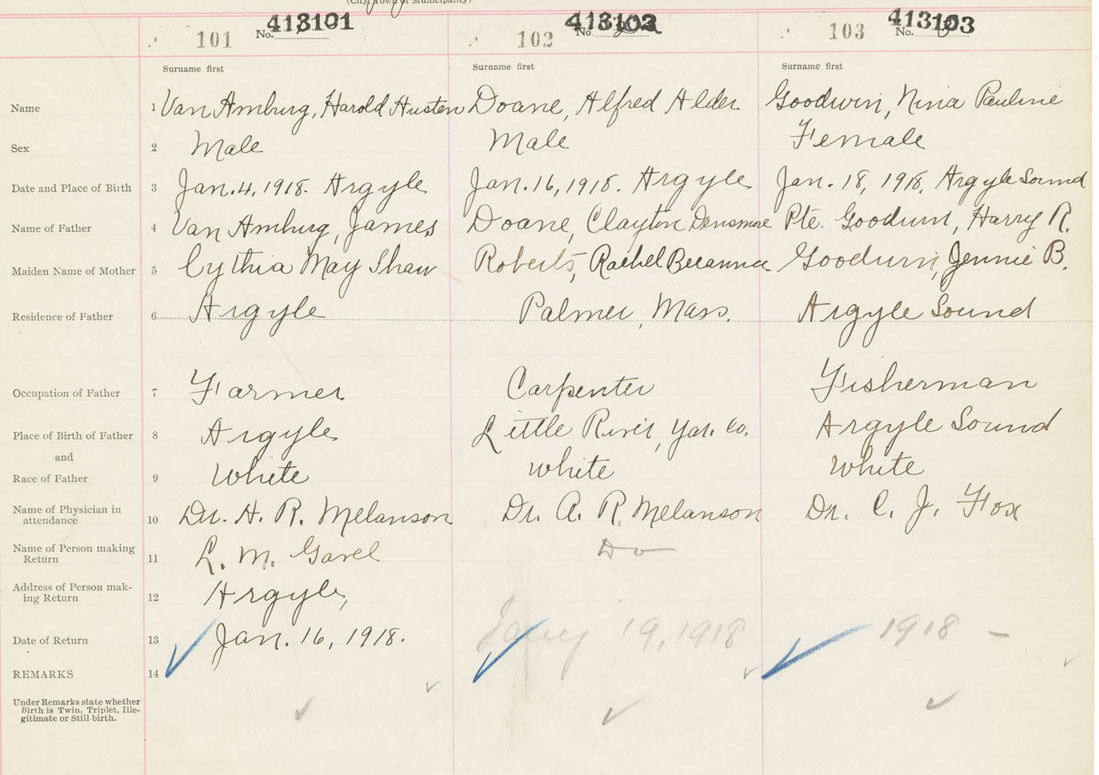 (City, Town or Municipality)
413101 413102 413103
101 No. 102 No. 103 No.
Surname first Surname first Surname first
Name 1 Van Amburg, Harold Husten Doane, Alfred Alder Goodwin, Nina Pauline
Sex 2 Male Male Female
Date and Place of Birth 3 Jan. 4, 1918. Argyle Jan. 16, 1918. Argyle Jan. 18, 1918, Argyle Sound
Name of Father 4 Van Amburg, James Doane, Clayton Densmore Pte. Goodwin, Harry R.
Maiden Name of Mother 5 Cythia May Shaw Roberts, Rachel Goodwin, Jennie B.
Residence of Father 6 Argyle Palmer, Mass. Argyle Sound
Occupation of Father 7 Farmer Carpenter Fisherman
Place of Birth of Father 8 Argyle Little River, Yar. Co. Argyle Sound
and
Race of Father 9 White White White
Name of Physician in
attendance 10 Dr. H. R. Melanson Dr. A. R. Melanson Dr. C. J. Fox
Name of Person making
Return 11 L. M. Gavel Do
Address of Person mak-
ing Return 12 Argyle,
Date of Return 13 Jan. 16, 1918. Jany 19, 1918 1918 –
REMARKS 14
Under Remarks state whether
Birth is Twin, Triplet, Ille-
gitimate or Still-birth.